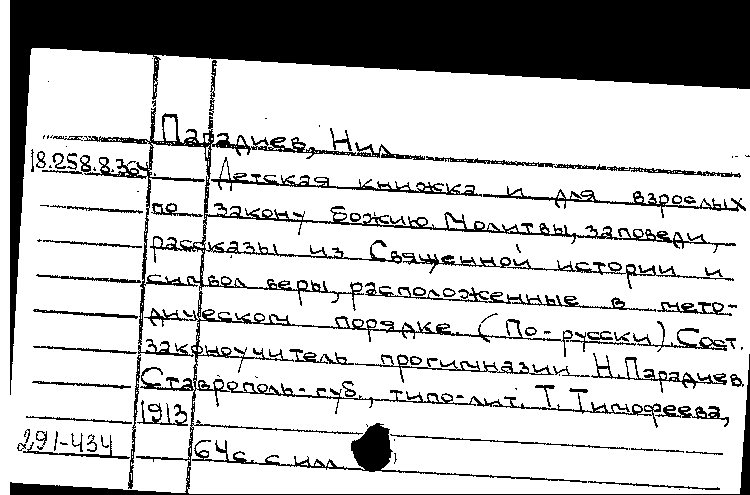 Парадиев, Нил
18.258.8.364.
Детская книжка и для взрослых
по закону Божию. Молитвы, заповеди,
рассказы из Священной истории и
символ веры, расположенные в мето-
дическом порядке. (По-русски). Сост.
законоучитель прогимназии Н. Парадиев.
Ставрополь-губ., типо-лит. Т. Тимофеева,
1913.
291-434
64 с. с илл